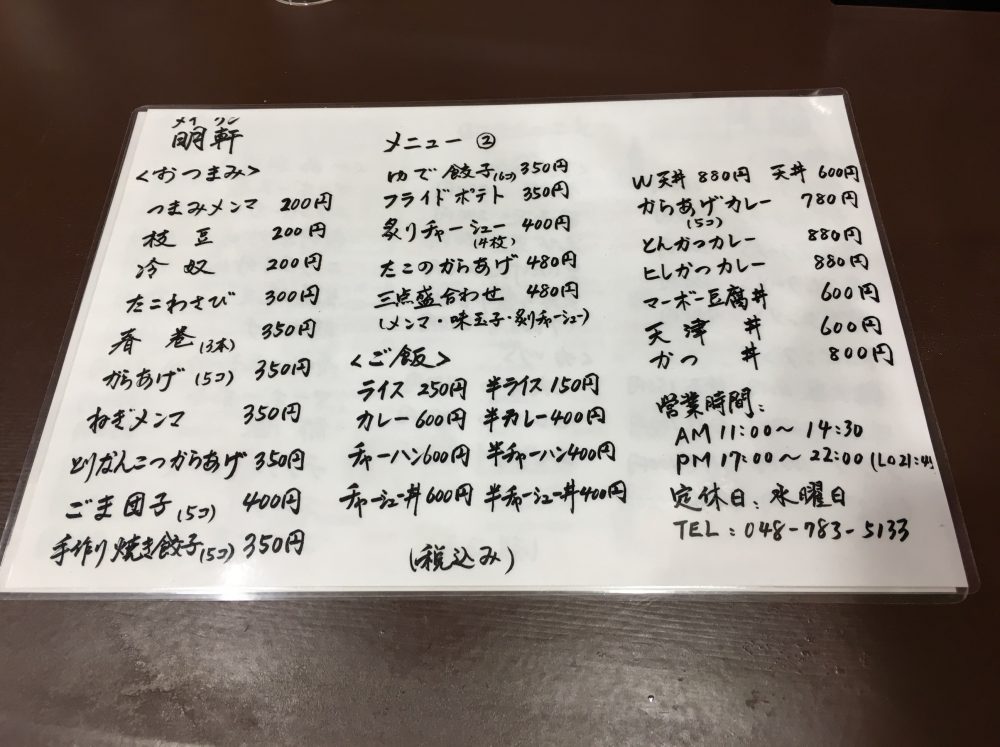 メイ リン
明軒
メニュー ②
<おつまみ>
つまみメンマ 200円
枝豆 200円
冷奴 200円
たこわさび 300円
春巻(3本) 350円
からあげ(5コ) 350円
ねぎメンマ 350円
とりなんこつからあげ 350円
ごま団子(5コ) 400円
手作り焼き餃子(5コ) 350円
ゆで餃子(6コ) 350円
フライドポテト 350円
炙りチャーシュー 400円
(4枚)
たこのからあげ 480円
三点盛合わせ 480円
(メンマ・味玉子・炙りチャーシュー)
<ご飯>
ライス 250円 半ライス 150円
カレー 600円 半カレー 400円
チャーハン 600円 半チャーハン 400円
チャーシュー丼 600円 半チャーシュー丼 400円
(税込み)
W天丼 880円 天丼 600円
からあげカレー 780円
(5コ)
とんかつカレー 880円
ヒレかつカレー 880円
マーボー豆腐丼 600円
天津丼 600円
かつ丼 800円
営業時間:
AM 11:00~14:30
PM 17:00~22:00 (LO21:
定休日:水曜日
TEL:048-783-5133